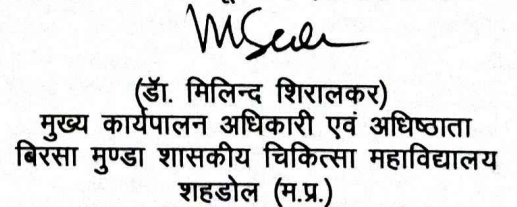 (डॉ. मिलिन्द शिरालकर)
मुख्य कार्यपालन अधिकारी एवं अधिष्ठाता
बिरसा मुण्डा शासकीय चिकित्सा महाविद्यालय
शहडोल (म.प्र.)